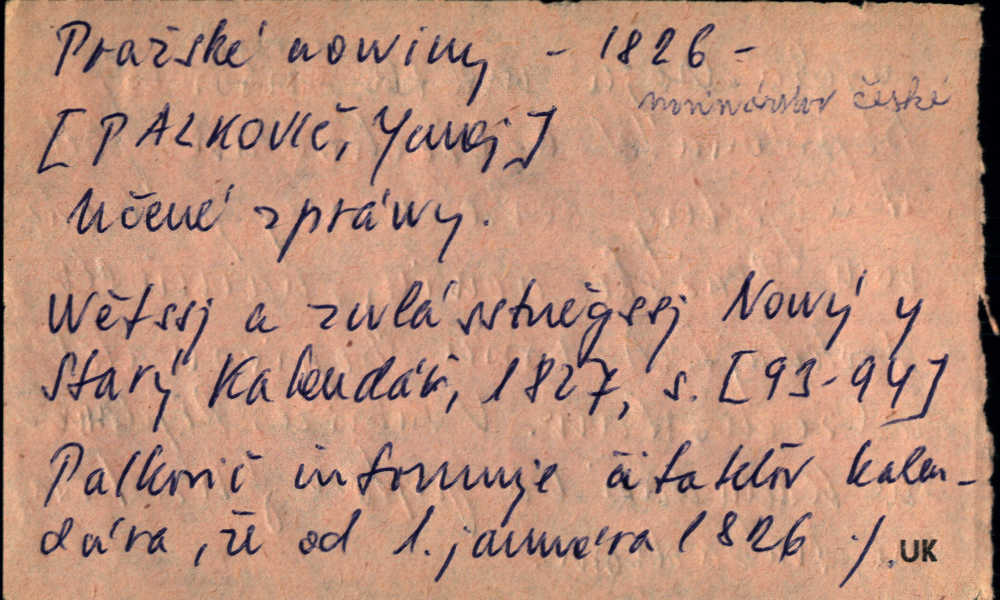 Pražské nowiny - 1826 -
novinárstvo české
[PALKOVIČ, Juraj]
Učené zpráwy.
Wětssj a zwlásstněgssj Nowý y
Starý Kalendář, 1827, s. [93-94]
Palkovič informuje čitateľov kalen-
dára, že od 1. januára 1826 ./.
UK